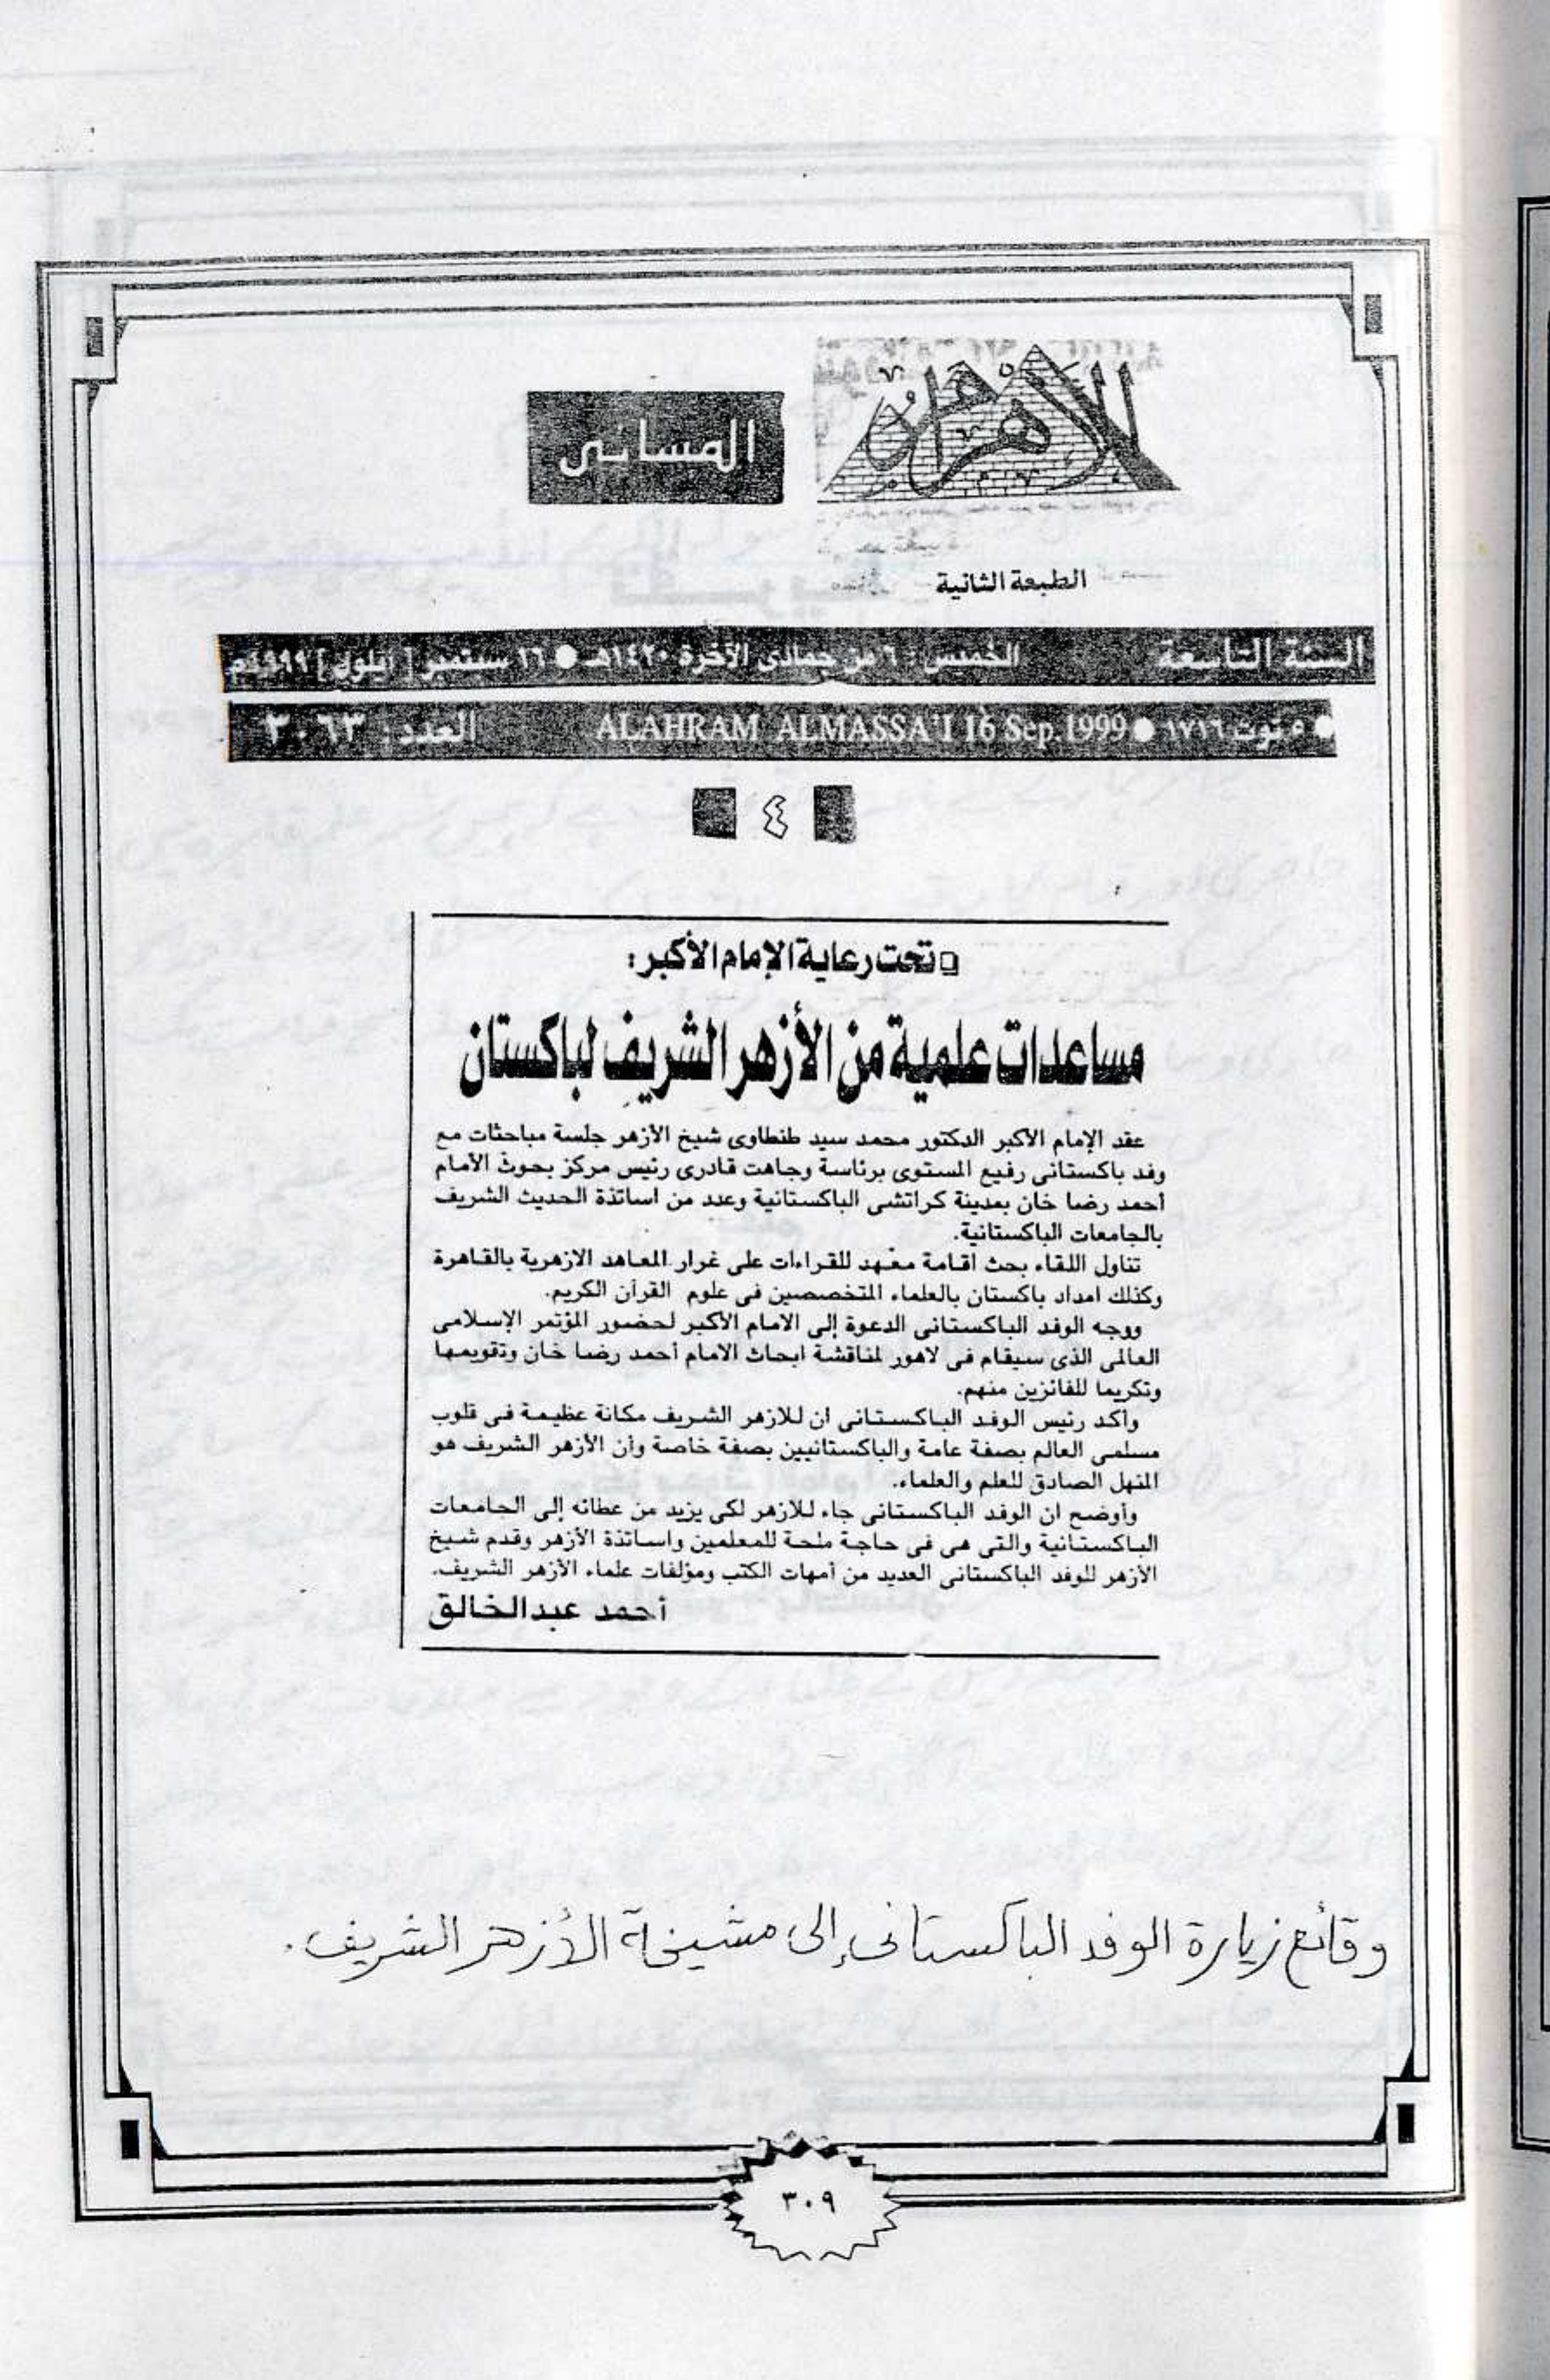 الأهرام
المسائى
الطبعة الثانية
السنة التاسعة الخميس: ٦ من جمادى الآخرة ١٤٢٠هـ ● ١٦ سبتمبر [ أيلول ] ١٩٩٩م
● ٥ توت ١٧١٦ ● ALAHRAM ALMASSA'I 16 Sep.1999 العدد: ٣٠٦٣
٤
تحت رعاية الإمام الأكبر:
مساعدات علمية من الأزهر الشريف لباكستان
عقد الإمام الأكبر الدكتور محمد سيد طنطاوى شيخ الأزهر جلسة مباحثات مع
وفد باكستانى رفيع المستوى برئاسة وجاهت قادرى رئيس مركز بحوث الأمام
أحمد رضا خان بمدينة كراتشى الباكستانية وعدد من اساتذة الحديث الشريف
بالجامعات الباكستانية.
تناول اللقاء بحث اقامة معهد للقراءات على غرار المعاهد الازهرية بالقاهرة
وكذلك امداد باكستان بالعلماء المتخصصين فى علوم القرآن الكريم.
ووجه الوفد الباكستانى الدعوة إلى الامام الأكبر لحضور المؤتمر الإسلامى
العالمى الذى سيقام فى لاهور لمناقشة ابحاث الامام أحمد رضا خان وتقويمها
وتكريما للفائزين منهم.
وأكد رئيس الوفد الباكستانى ان للازهر الشريف مكانة عظيمة فى قلوب
مسلمى العالم بصفة عامة والباكستانيين بصفة خاصة وأن الأزهر الشريف هو
المنهل الصادق للعلم والعلماء.
وأوضح ان الوفد الباكستانى جاء للازهر لكى يزيد من عطائه إلى الجامعات
الباكستانية والتى هى فى حاجة ملحة للمعلمين واساتذة الأزهر وقدم شيخ
الأزهر للوفد الباكستانى العديد من أمهات الكتب ومؤلفات علماء الأزهر الشريف.
أحمد عبدالخالق
وقائع زيارة الوفد الباكستانى إلى مشيخة الأزهر الشريف.
٣٠٩